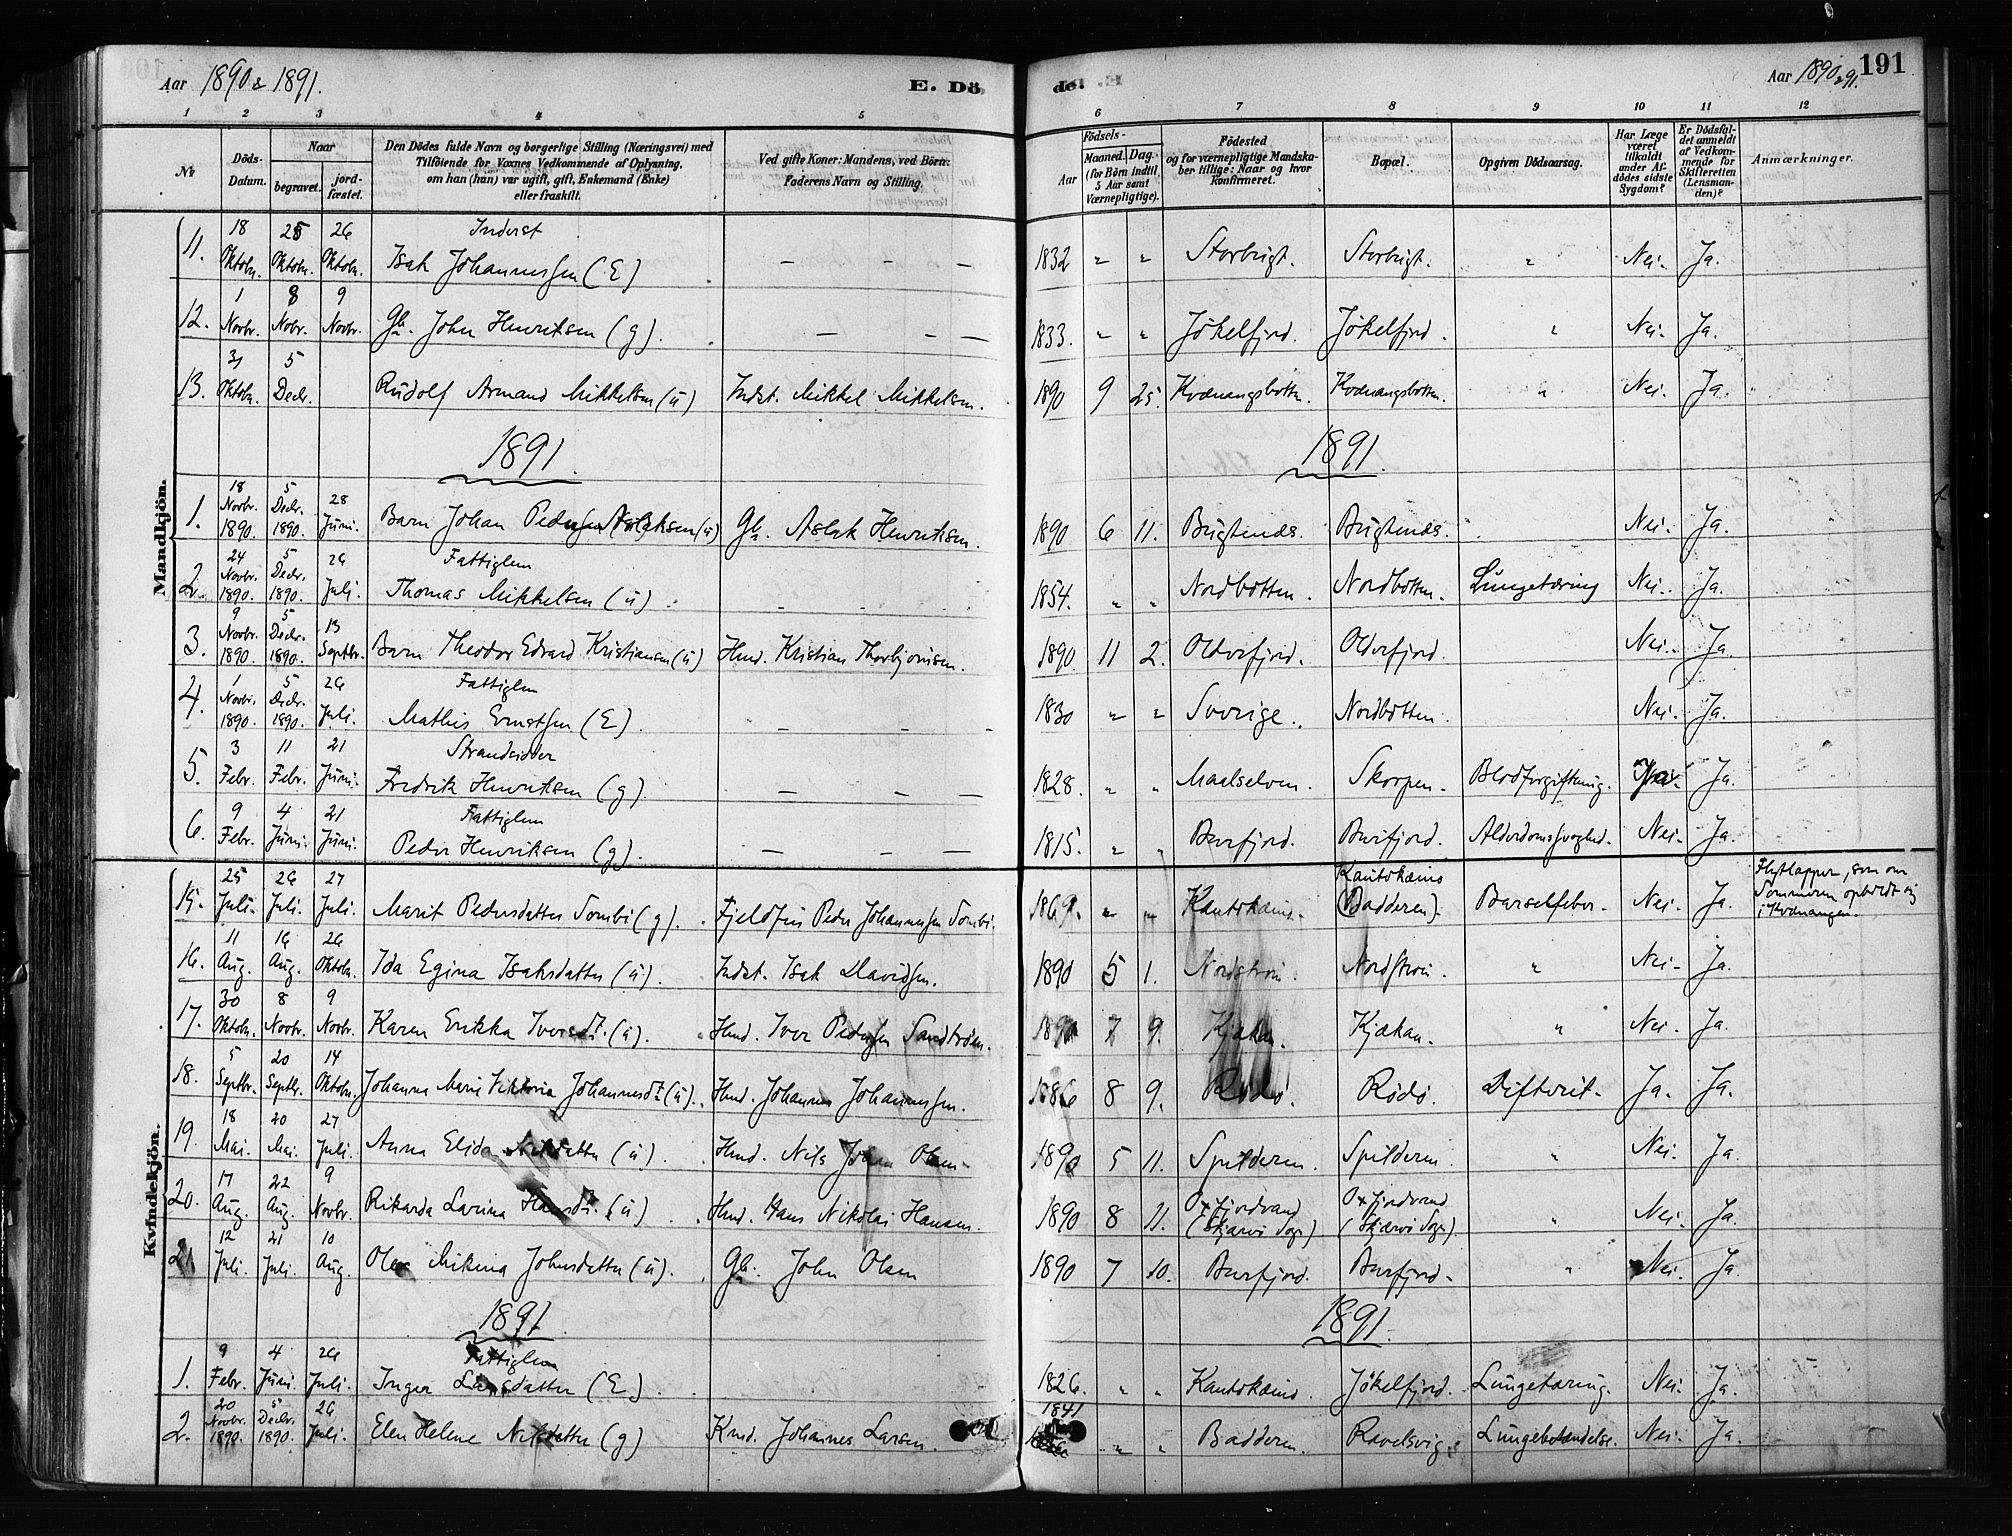 Aar 1890 & 1891.
E. Dö
de.
Aar 1890 & 91.
191
1 2 3 4 5 6 7 8 9 10 11 12
No
Döds-Datum.
Naar
begravet.
jord-fæstet.
Den Dödes fulde Navn og borgerlige Stilling (Næringsvei) med
Tilföiende for Voxnes Vedkommende af Oplysning,
om han (hun) var ugift, gift, Enkemand (Enke)
eller fraskilt.
Ved gifte Koner: Mandens, ved Börn:
Faderens Navn og Stilling.
Födsels-
Aar
Maaned. Dag.
(for Börn indtil
5 Aar samt
Værnepligtige).
Födested
og for værnepligtige Mandska-
ber tillige: Naar og hvor
konfirmeret.
Bopæl.
Opgiven Dödsaarsag.
Har Læge
været
tilkaldt
under Af-
dödes sidste
Sygdom?
Er Dödsfal-
det anmeldt
af Vedkom-
mende for
Skifteretten
(Lensman-
den)?
Anmærkninger.
Mandkjön.
11. 18 Oktobr. 25 Oktobr. 26 Oktobr. Inderst Isak Johannessen (E) — — — 1832 " " Storbugt. Storbugt. " Nei. Ja.
12. 1 Novbr. 8 Nobr. 9 Novbr. Gb. John Henriksen (g). — — — 1833. " " Jökelfjord. Jökelfjord. " Nei. Ja.
13. 31 Oktobr. 5 Decbr. Rudolf Armand Mikkelsen (ú) Indst. Mikkel Mikkelsen. 1890 9 25. Kvænangsbotten. Kvænangsbotten. " Nei. Ja.
1891. 1891.
1. 18 Novbr. 1890. 5 Decbr. 1890. 28 Juni. Barn Johan Pedersen Aslaksen (ú) Gb. Aslak Henriksen. 1890 6 11. Bugtenæs. Bugtenæs. Nei. Ja.
2. 24 Novbr. 1890. 5 Decbr. 1890. 26 Juli. Fattiglem Thomas Mikkelsen (ú). 1854. " " Nordbotten. Nordbotten. Lungetæring Nei. Ja.
3. 9 Novbr. 1890. 5 Decbr. 1890. 13 Septbr. Barn Theodor Edvard Kristiansen (ú) Hmd. Kristian Thorbjørnsen. 1890 11 2. Olderfjord. Olderfjord. Nei. Ja.
4. 1 Novbr. 1890. 5 Decbr. 1890. 26 Juli. Fattiglem Mathis Ernstsen (E). — — — 1830 " " Sverige. Nordbotten. Nei. Ja.
5. 3 Febr. 11 Febr. 21 Juni. Strandsidder Fredrik Henriksen (g) — — — 1828. " " Maalselven. Skorpen. Blodforgiftning. Ja. Ja.
6. 9 Febr. 4 Juni. 21 Juni. Fattiglem Peder Henriksen (g). — — — 1815. " " Burfjord. Burfjord. Alderdomssvaghed. Nei. Ja.
Kvindekjön.
15. 25 Juli. 26 Juli. 27 Juli. Marit Pedersdatter Sombi (g). Fjeldfin Peder Johannessen Sombi. 1869. " " Kautokæino. Kautokæino (Badderen). Barselfeber. Nei. Ja. Flytlapper, som om Sommeren opholdt sig i Kvænangen.
16. 11 Aug. 16 Aug. 26 Oktobr. Ida Egina Isaksdatter (ú). Indst. Isak Davidsen. 1890 5 1. Nordstrøm. Nordstrøm. " Nei. Ja.
17. 30 Oktobr. 8 Novbr. 9 Novbr. Karen Erikka Iversdt. (ú). Hmd. Iver Pedersen Sandtrøen. 1890 7 9. Kjækan. Kjækan. " Nei. Ja.
18. 5 Septbr. 20 Septbr. 14 Oktobr. Johanna Marie Viktoria Johannesdt (ú). Hmd. Johannes Johannessen. 1886 8 9. Rödö. Rödö. Difterit. Ja. Ja.
19. 18 Mai. 20 Mai. 27 Juli. Anna Elida Nilsdatter (ú). Hmd. Nils Johan Olsen. 1890 5 11. Spilderen. Spilderen. " Nei. Ja.
20. 17 Aug. 22 Aug. 9 Novbr. Rikarda Larina Hansdt. (ú). Hmd. Hans Nikolai Hansen. 1890 8 11. Oxfjordvand (Skjærvö Sogn) Oxfjordvand (Skjærvö Sogn) " Nei. Ja.
21. 12 Juli. 21 Juli. 10 Aug. Olea Mikina Johnsdatter (ú). Gb. John Olsen 1890 7 10. Burfjord. Burfjord. " Nei. Ja.
1891. 1891.
1. 9 Febr. 4 Juni. 26 Juli. Fattiglem Inger Larsdatter (E). 1826. " " Kautokæino. Jökelfjord. Lungetæring. Nei. Ja.
2. 20 Novbr. 1890. 5 Decbr. 1890. 26 Juli. Elen Helene Nilsdatter (g) Kmd. Johannes Larsen. 1841 " " Badderen. Ravelsvig. Lungebetændelse. Nei. Ja.